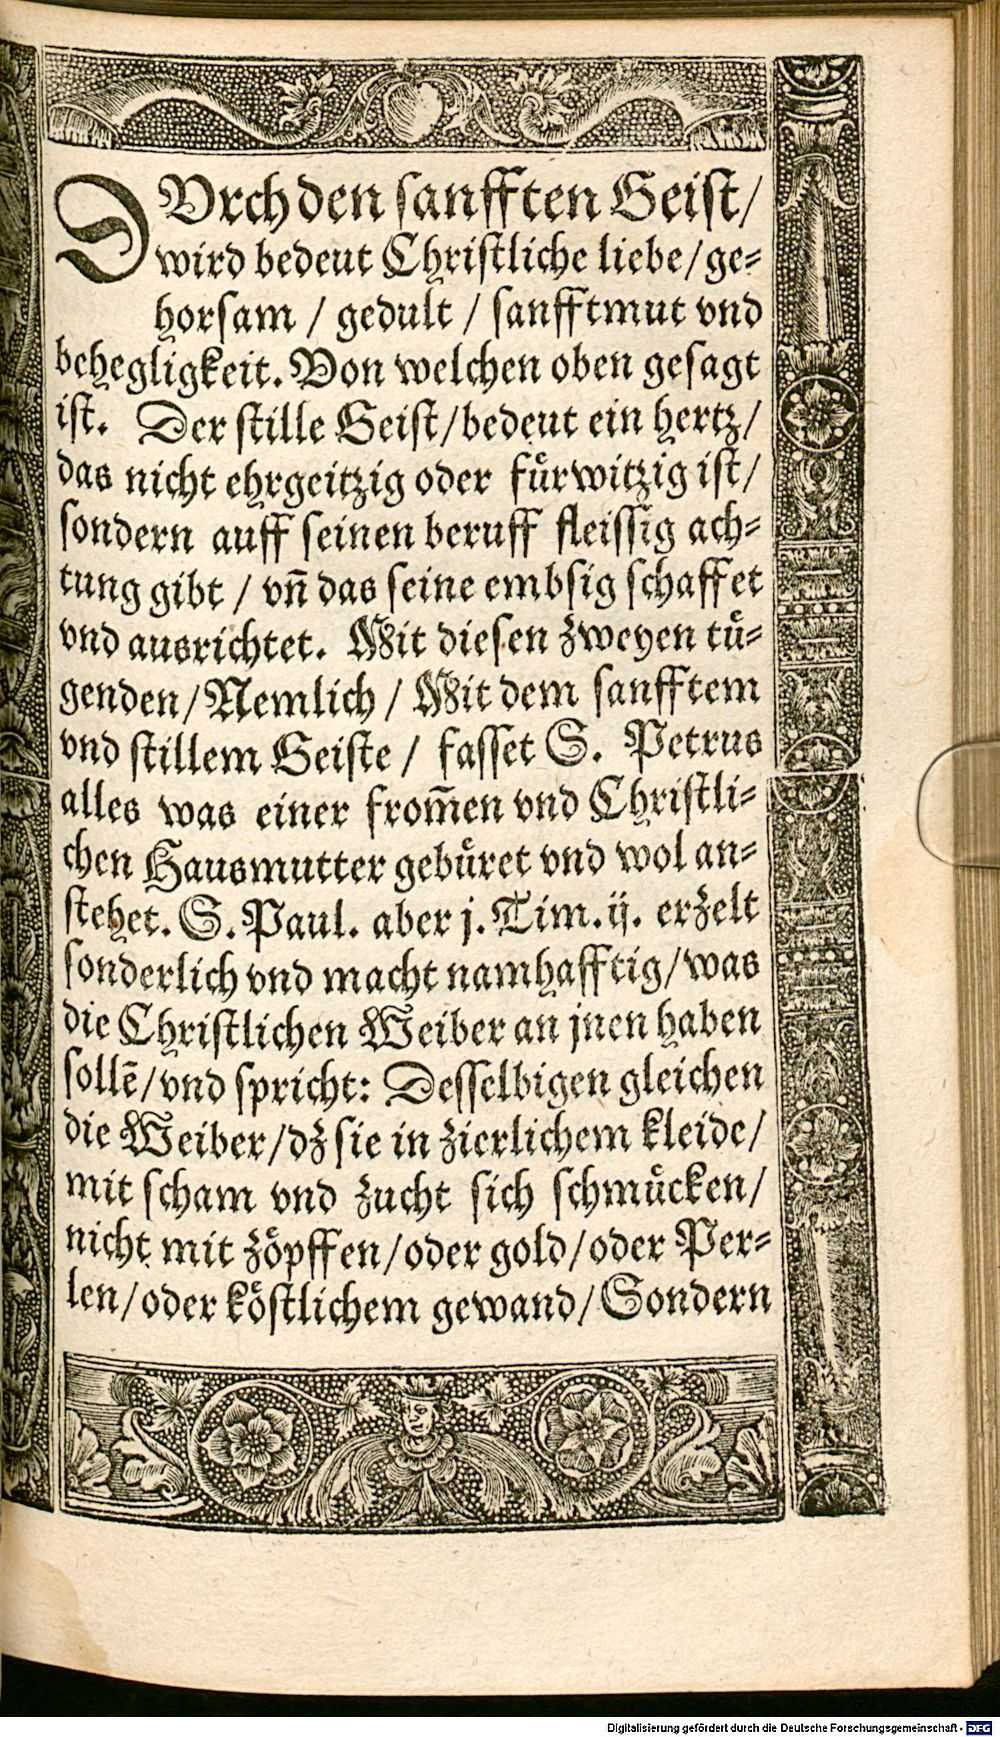 DVrch den sanfften Geist/
wird bedeut Christliche liebe/ge⸗
horsam / gedult / sanfftmut vnd
behegligkeit. Von welchen oben gesagt
ist. Der stille Geist/bedeut ein hertz/
das nicht ehrgeitzig oder fuͤrwitzig ist/
sondern auff seinen beruff fleissig ach⸗
tung gibt / vn̄ das seine embsig schaffet
vnd ausrichtet. Mit diesen zweyen tuͤ⸗
genden/Nemlich / Mit dem sanfftem
vnd stillem Geiste / fasset S. Petrus
alles was einer from̄en vnd Christli⸗
chen Hausmutter gebuͤret vnd wol an⸗
stehet. S. Paul. aber j. Tim. ij. erzelt
sonderlich vnd macht namhafftig/was
die Christlichen Weiber an jnen haben
sollē/vnd spricht: Desselbigen gleichen
die Weiber/dz sie in zierlichem kleide/
mit scham vnd zucht sich schmuͤcken/
nicht mit zoͤpffen/oder gold/oder Per⸗
len/oder koͤstlichem gewand/Sondern
Digitalisierung gefördert durch die Deutsche Forschungsgemeinschaft - DFG